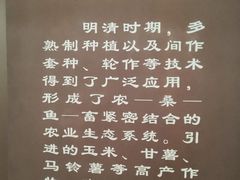 明清时期，多
熟制种植以及间作
套种、轮作等技术
得到了广泛应用，
形成了农—桑—
鱼—畜紧密结合的
农业生态系统。引
进的玉米、甘薯、
马铃薯等高产作